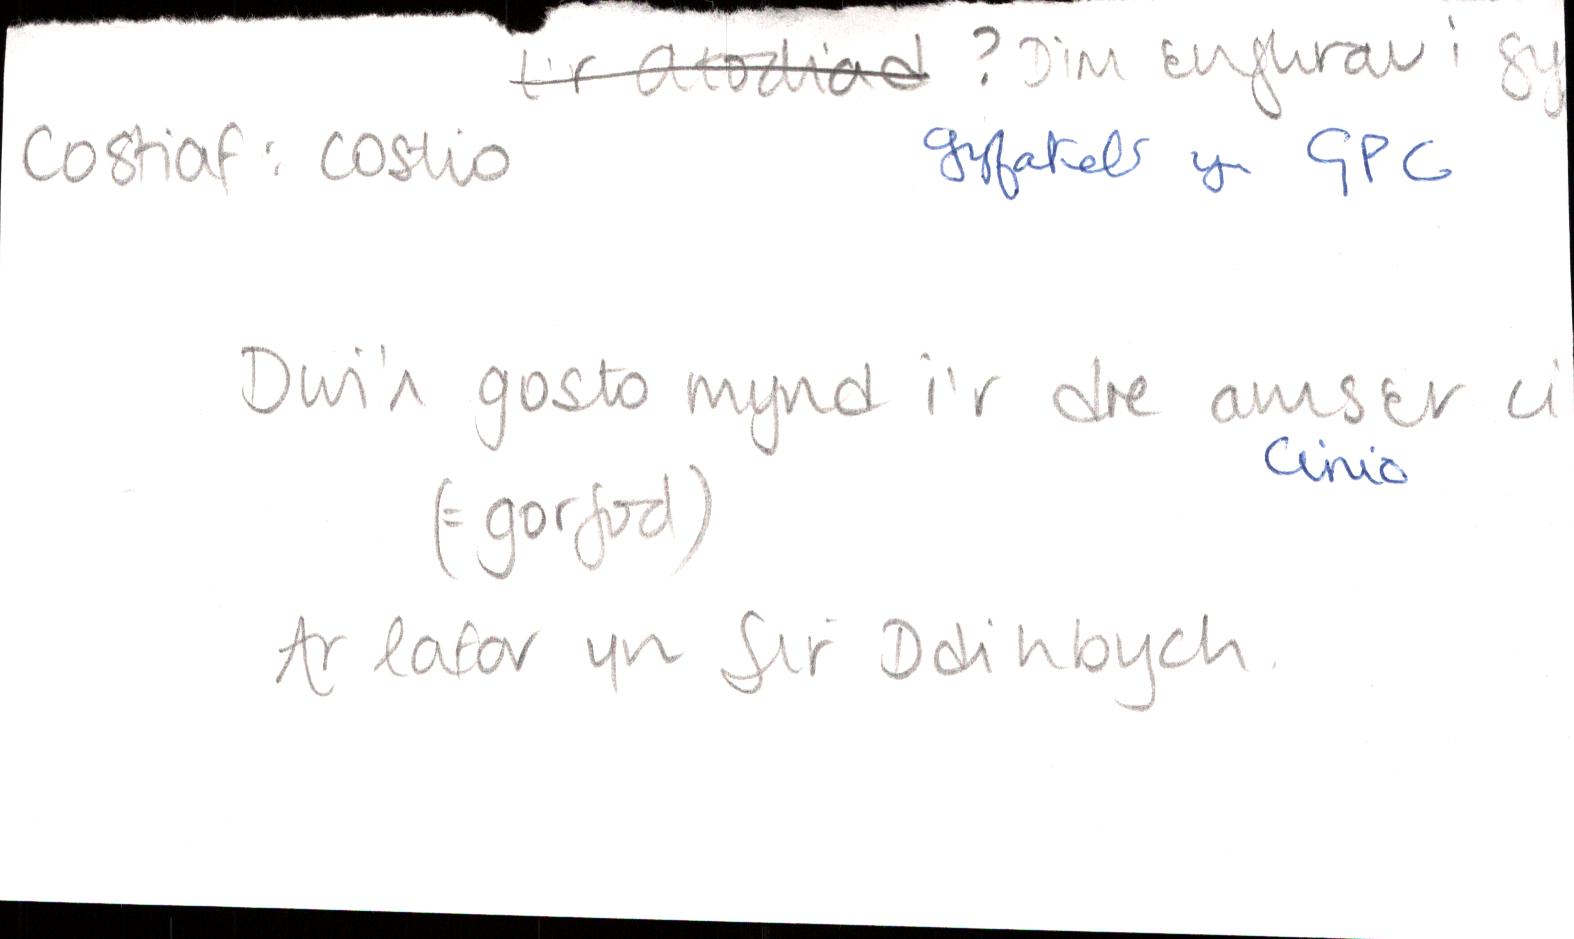 I'r Atodiad ? Dim enghrau i gy
Costiaf : costio gyfateb yn GPC
Dwi'n gosto mynd i'r dre amser ci
cinio
(= gorfod)
Ar lafar yn Sir Ddinbych.